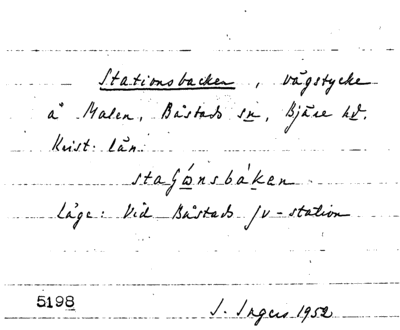 Stationsbacken, vägstycke
å Malen, Båstads sn, Bjäre hd.
Krist. län.
Läge: Vid Båstads jv-station
5198
I. Ingers 1952